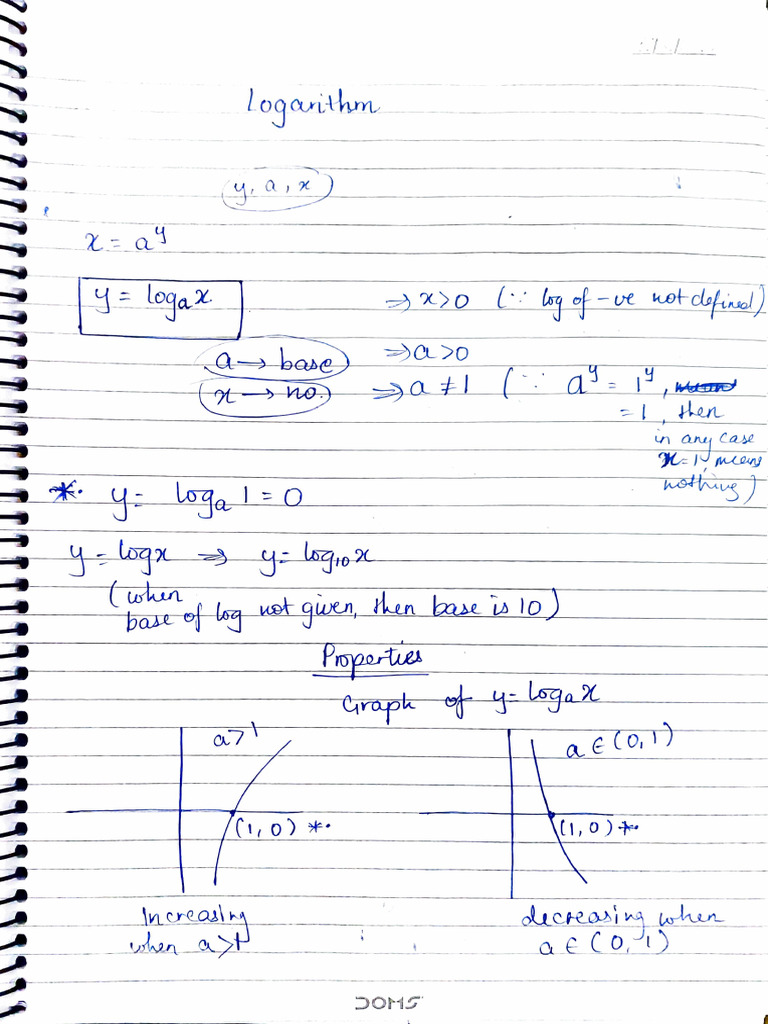 Logarithm
y, a, x
x = a^y
y = log_a x. ⇒ x>0 (∵ log of -ve not defined)
a → base ⇒ a>0
x → no. ⇒ a ≠ 1 (∵ a^y = 1^y,
= 1, then
in any case
x=1, means
nothing)
*. y = log_a 1 = 0
y = log x ⇒ y = log_10 x
(when
base of log not given, then base is 10)
Properties
Graph of y = log_a x
a>1 a ∈ (0, 1)
(1, 0) *. (1, 0) *.
Increasing decreasing when
when a>1 a ∈ (0, 1)
DOMS